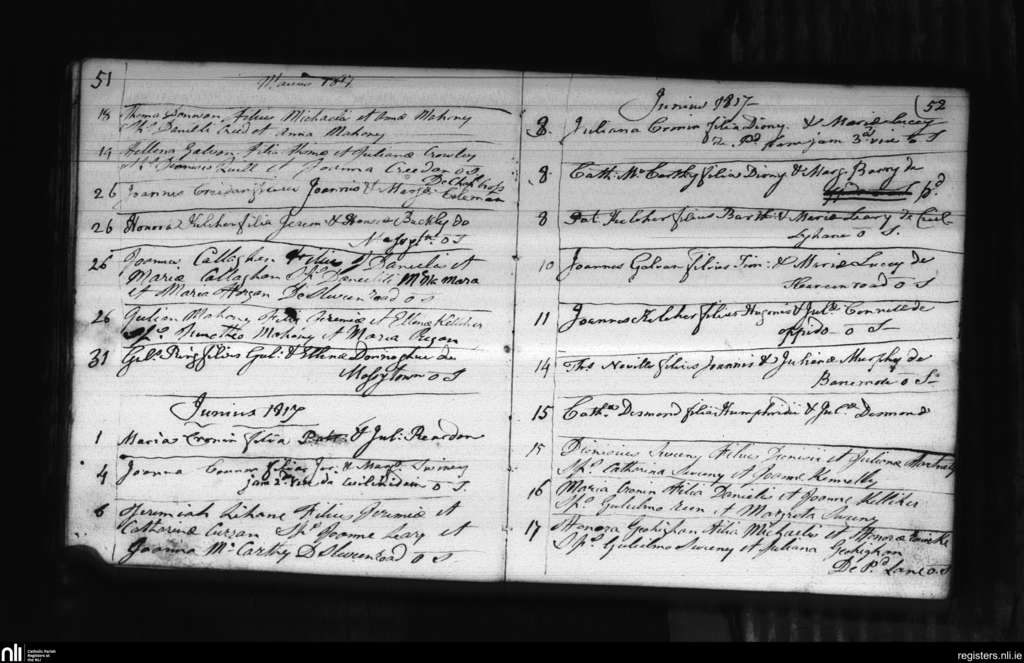 51
Maius 1817
18 Thomas Donovan Filius Michaelis et Annæ Mahony
Sps. Daniele Reed et Anna Mahony
19 Hellena Galvan Filia Thomæ et Julianæ Crowley
et Joanna Creedan o S
26 Joannis Creedan filius Joannis & Marg. Coleman
26 Honora Kelcher filia Jerem: & Honoræ Buckley de
Massytn. o S
26 Joanna Callaghan Filia Danielis et
Mariæ Callaghan Sps. McNamara
et Maria Horgan De Sluvenroad o S
26 Julian Mahony Filia Jeremiæ et Ellenæ Kelleher
Sps. Timotheo Mahony et Maria Regan
31 Gul. Ring filius Gul: & Ellenæ Donnoghue de
Massytown o S
Junius 1817
1 Marias Cronin filia Patt: & Jul: Reardon
4 Joanna Connor filia Jer. & Marg. Swiney
jam 2a vice de o S.
6 Jeremiah Lihane Filius Jeremiæ et
Catharinæ Curran Sps. Joanne Leary et
Joanna McCarthy D Sluvenroad o S
52
Junius 1817
8 Juliana Cronin filia Diony. & Mariæ Lucey
jam 3a vice o S
8 Cath: McCarthy filia Diony & Marg: Barry de
8 Pat Kelcher filius Barth: & Mariæ Leary de
Lyhane o S.
10 Joannes Galvan filius Tim: & Mariæ Lucey de
road o S
11 Joannes Kelcher filius Hugonis & Julæ Connell de
oppido o S
14 Ths Neville filius Joannis & Julianæ Murphy de
o S
15 Catha. Desmond filia Humphridii & Jula. Desmond
15 Dionisius Sweny Filius Dionisii et Julianæ
Sps. Catharina Sweny et Joanne Kennelly
16 Maria Cronin Filia Danielis et Joannæ Kelleher
Sps. Gulielmo et Margreta Sweny
17 Honora Geohighan Filia Michaelis et Honoræ
Sps. Gulielmo Sweny et Juliana Geohighan
De Pd. Lane o S
nli
Catholic Parish
Registers at
the NLI
registers.nli.ie